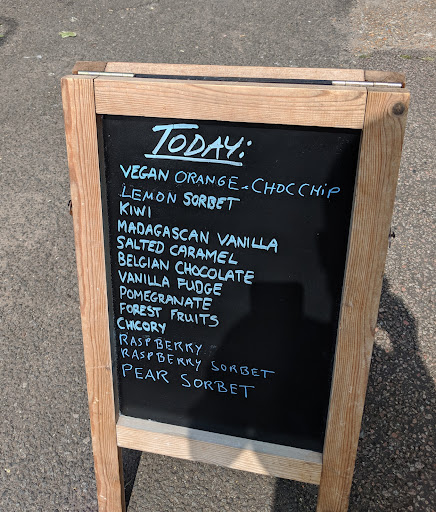 TODAY:
VEGAN ORANGE-CHOCCHIP
LEMON SORBET
KIWI
MADAGASCAN VANILLA
SALTED CARAMEL
BELGIAN CHOCOLATE
VANILLA FUDGE
POMEGRANATE
FOREST FRUITS
CHICORY
RASPBERRY
RASPBERRY SORBET
PEAR SORBET